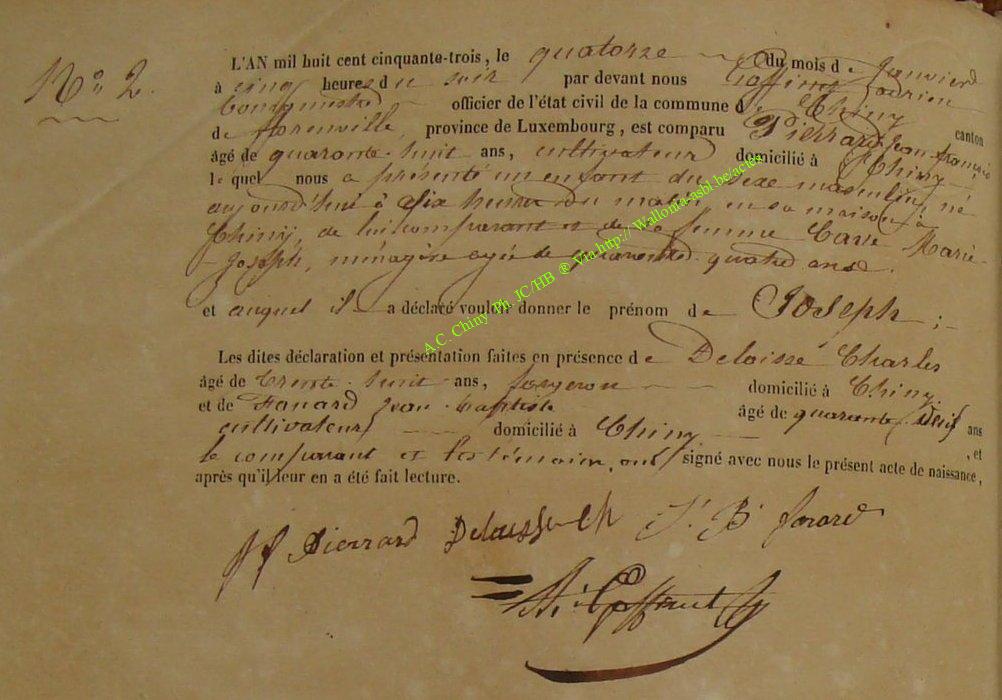 N° 2.
L'AN mil huit cent cinquante-trois, le quatorze du mois de Janvier
à cinq heures du soir par devant nous Goffinet Adrien
Bourgmestre officier de l'état civil de la commune de Chiny canton
de florenville, province de Luxembourg, est comparu Pierrard Jean françois
âgé de quarante-huit ans, cultivateur domicilié à Chiny
lequel nous a présenté un enfant du sexe masculin, né
aujourd'hui à dix heures du matin, en sa maison à
Chiny, de lui comparant et de sa femme Cave Marie-
Joseph, ménagère agée de quarante-quatre ans.
et auquel il a déclaré vouloir donner le prénom de Joseph;
Les dites déclaration et présentation faites en présence de Deloisse Charles
âgé de trente-huit ans, forgeron domicilié à Chiny.
et de Fanard Jean-Baptiste âgé de quarante-deux ans
cultivateur domicilié à Chiny , et
le comparant et les témoins, ont signé avec nous le présent acte de naissance,
après qu'il leur en a été fait lecture.
Jf Pierrard Deloisse ch J. B. fanard
A. Goffinet
A.C. Chiny Ph. JC/HB ® Via http:// Wallonia-asbl.be/actes